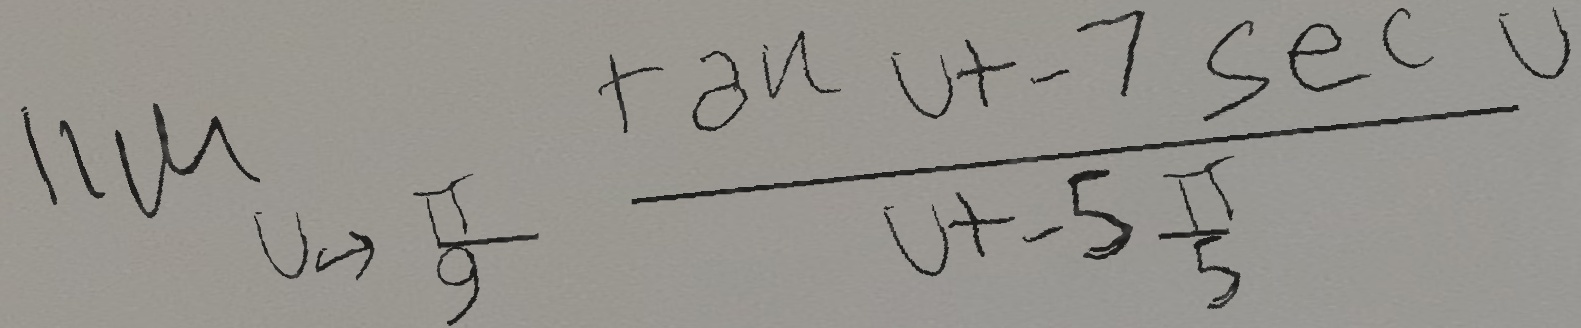 \lim_{u \to \frac{\pi}{9}} \frac{\tan u + -7 \sec u}{u + -5 \frac{\pi}{5}}